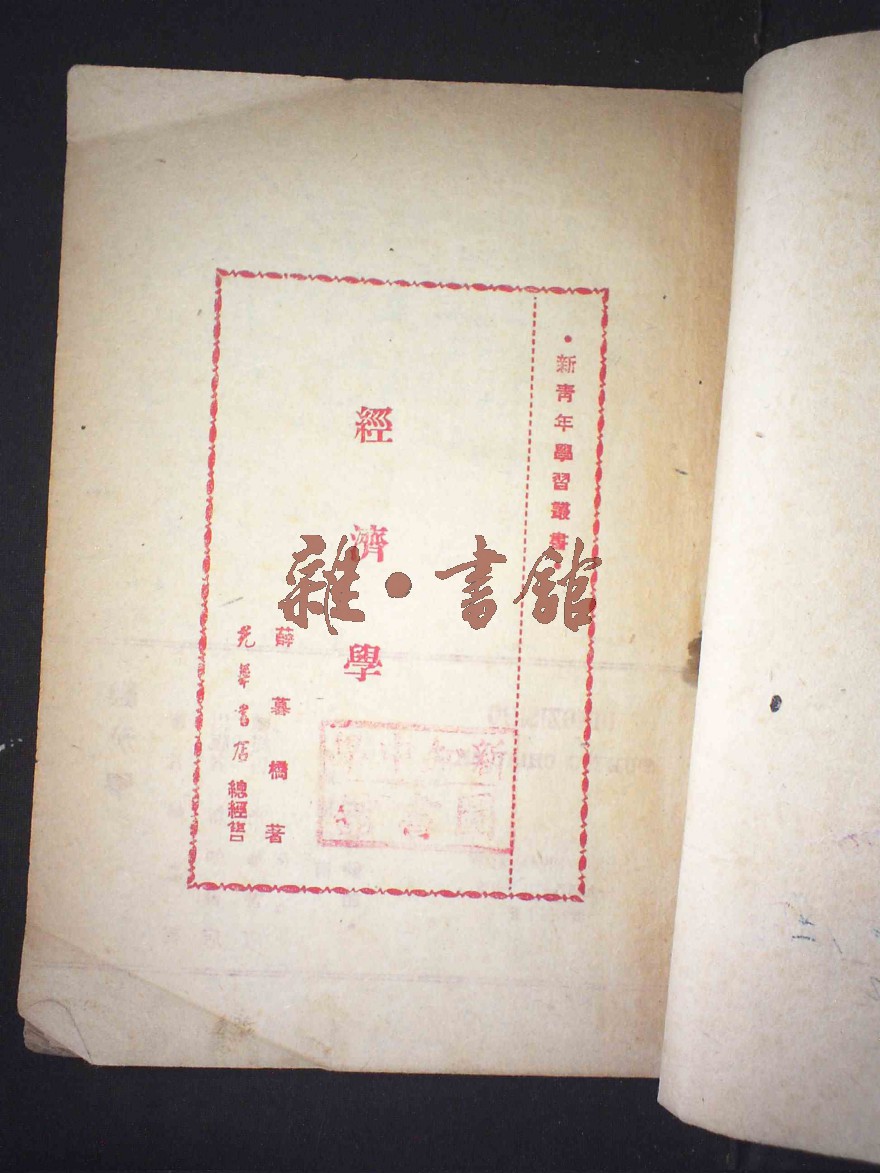 •新青年學習叢書
經濟學
薛暮橋著
光華書店總經售
雜•書館